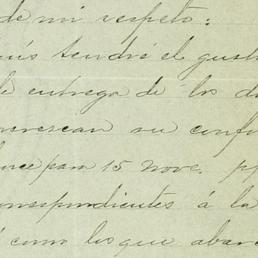 de mi respeto:
tendré el gust
de entrega de los d
merescan su conf
para 15 nove.
orrespondientes á la
como los que abarc